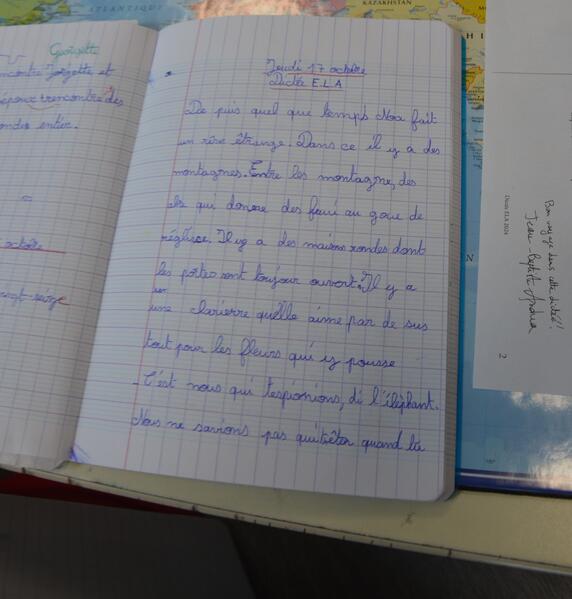 ATLANTIQUE
KAZAKHSTAN
Georgette
encontre Jorgette et
trencontre des
ondes entier.
octobre
vingt-seize
Jeudi 17 octobre
Dictée E.L.A
De puis quel que temps Noa fait
un rêve étrange. Dans ce il y a des
montagnes. Entre les montagne, des
qui donne des au goue de
réglisse. Il y a des maisons rondes dont
les portes sont toujour ouvert. Il y a
sur
une clarierre quelle aime par de sus
tout pour les fleurs qui y pousse
- C'est nous qui t'espionions, di l'éléphant.
Nous ne savions pas qui têter quand ta
Bon voyage dans cette dictée!!
Jean-Baptiste Andrea
Dictée ELA 2024
2